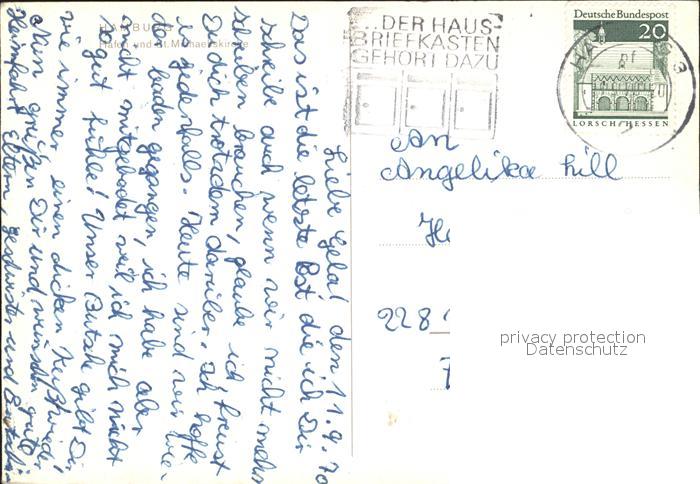 HAMBURG
Hafen und St. Michaeliskirche
Liebe Gela! den 11.9.70
Das ist die letzte Post die ich Dir
schreibe auch wenn wir nicht mehr
schreiben brauchen, glaube ich freust
Du dich trotzdem darüber. Ich hoffe
es jedenfalls. Heute sind wir wie-
der baden gegangen, ich habe aber
nicht mitgebadet weil ich mich nicht
so gut fühle! Unser Butschi gibt Dir
wie immer einen dicken Kuß! wieder!
Nun grüßen Dir und wünschen gute
Heimfahrt Eltern, Geschwister und Butschi
...DER HAUS-
BRIEFKASTEN
GEHÖRT DAZU
Deutsche Bundespost
20
LORSCH/HESSEN
An
Angelika Lill
228
privacy protection
Datenschutz